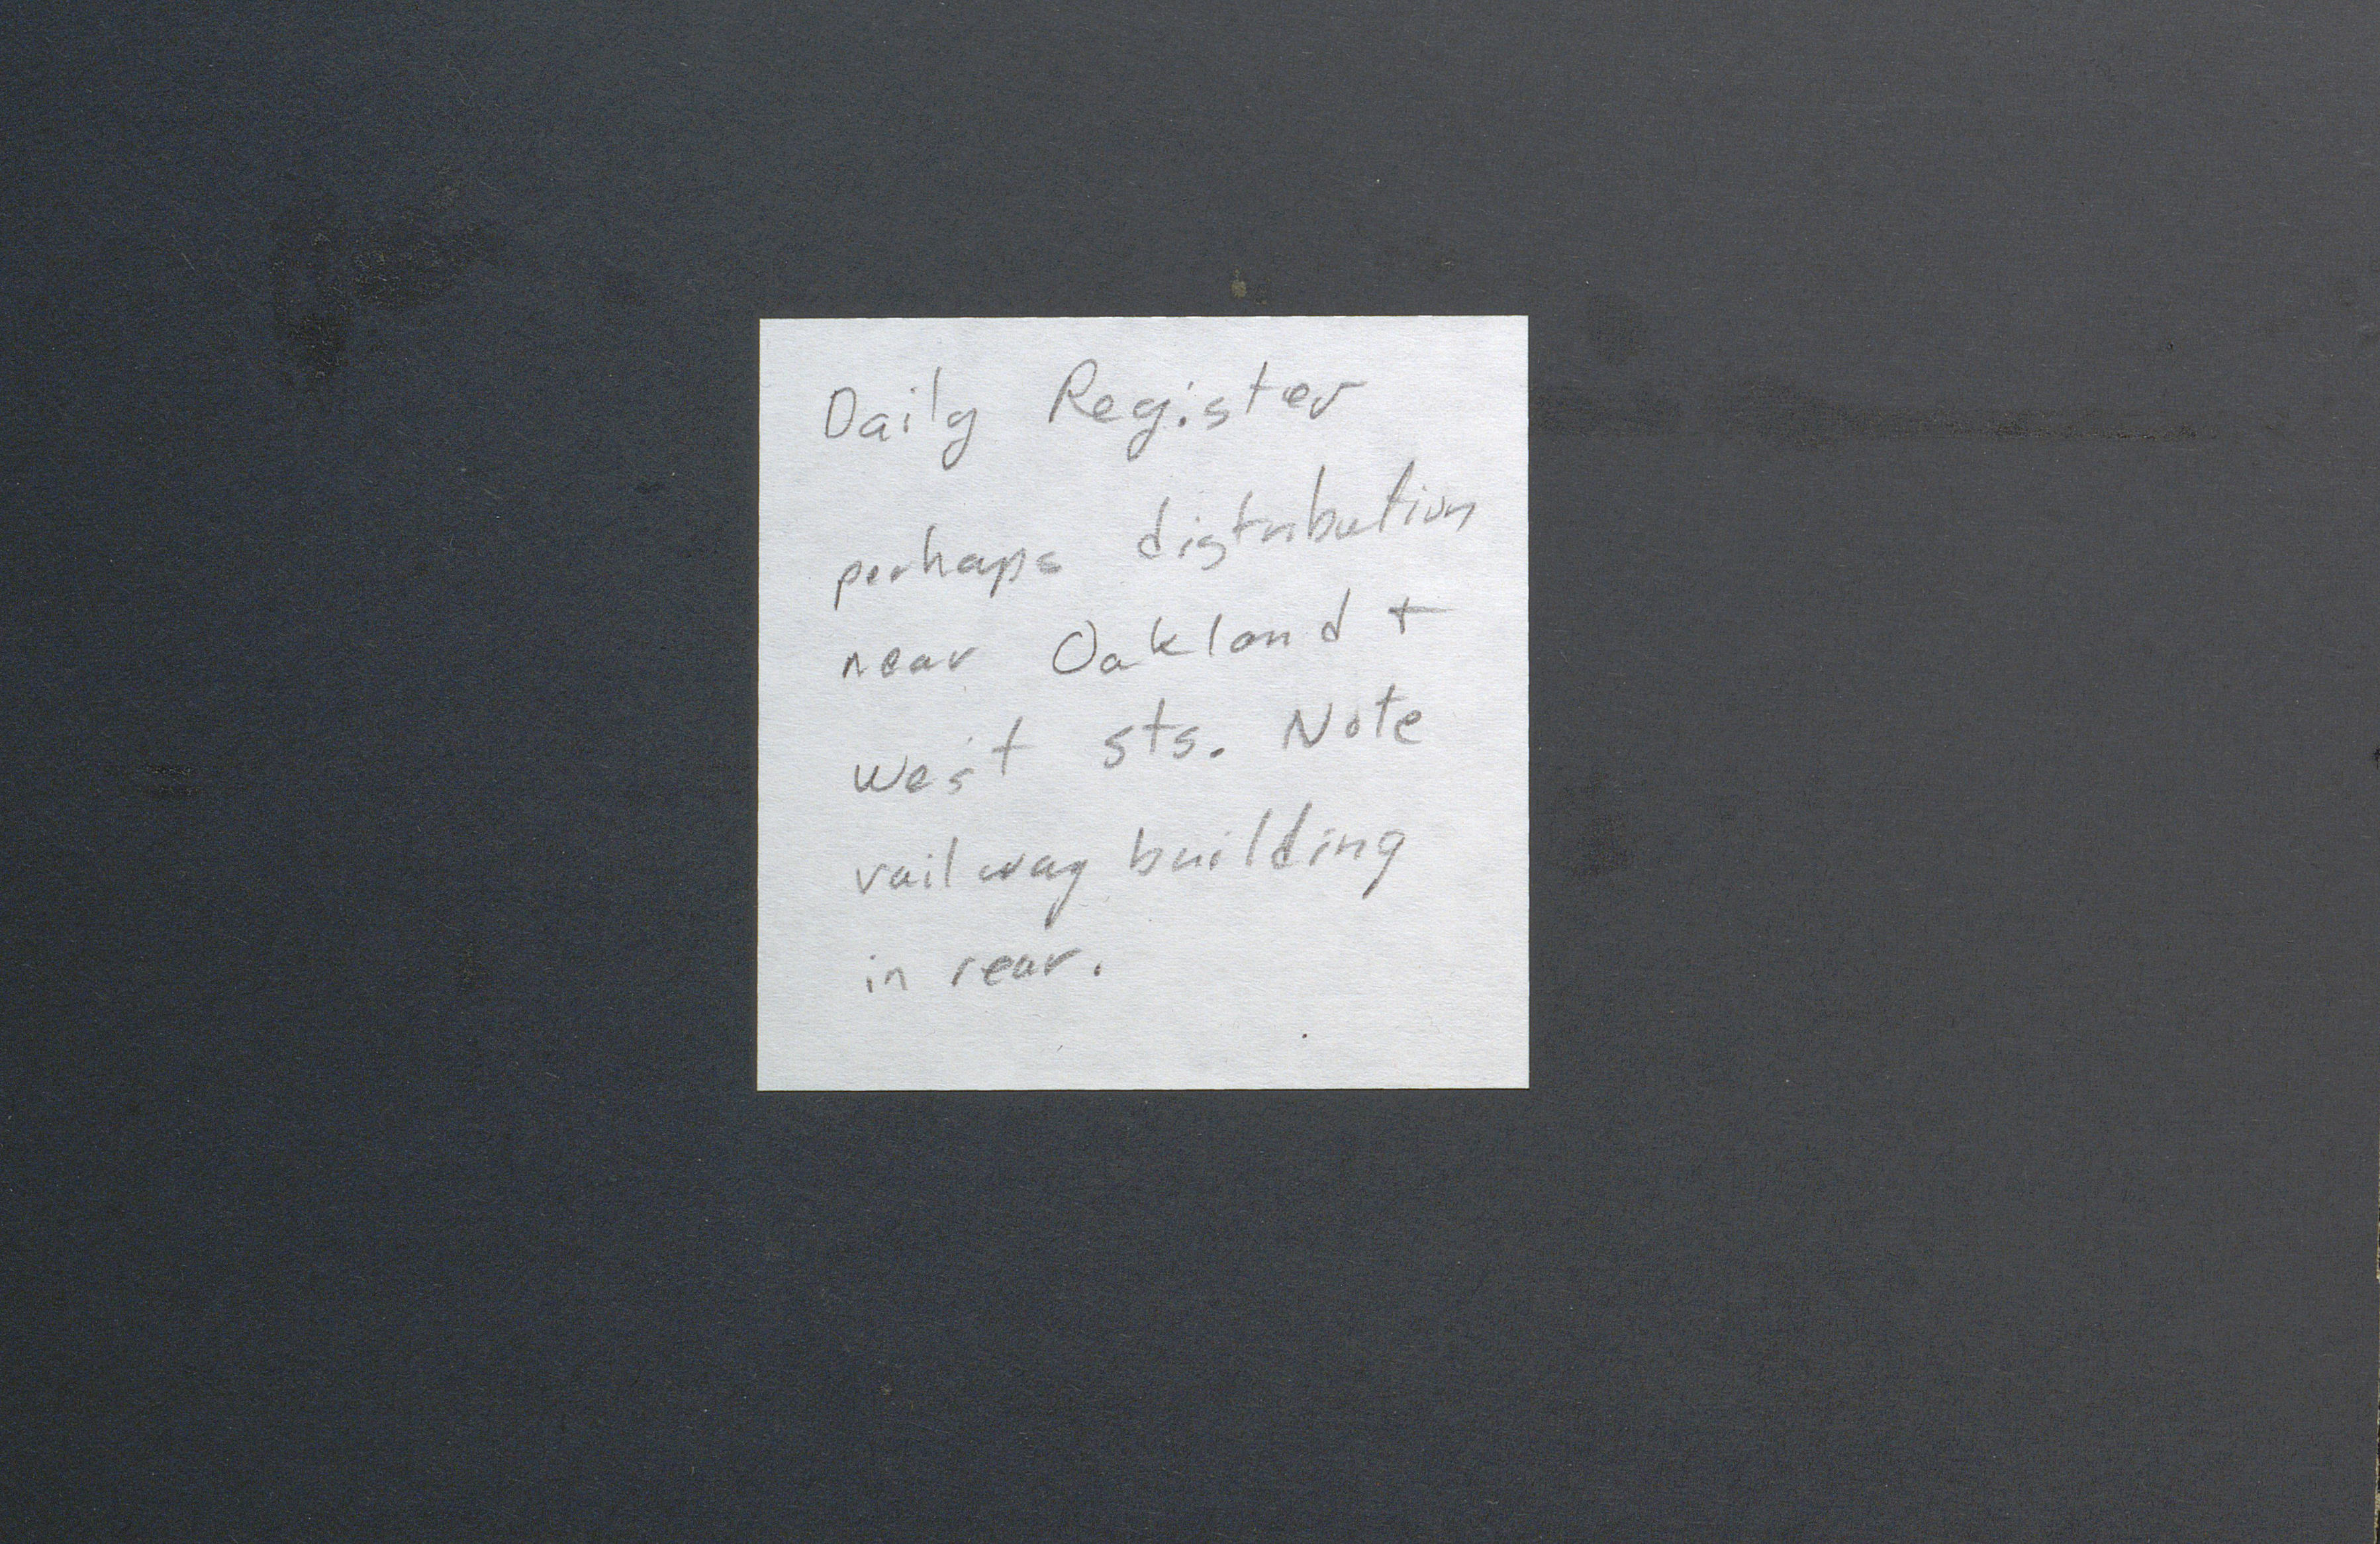 Daily Register
perhaps distribution
near Oakland +
West sts. Note
railway building
in rear.